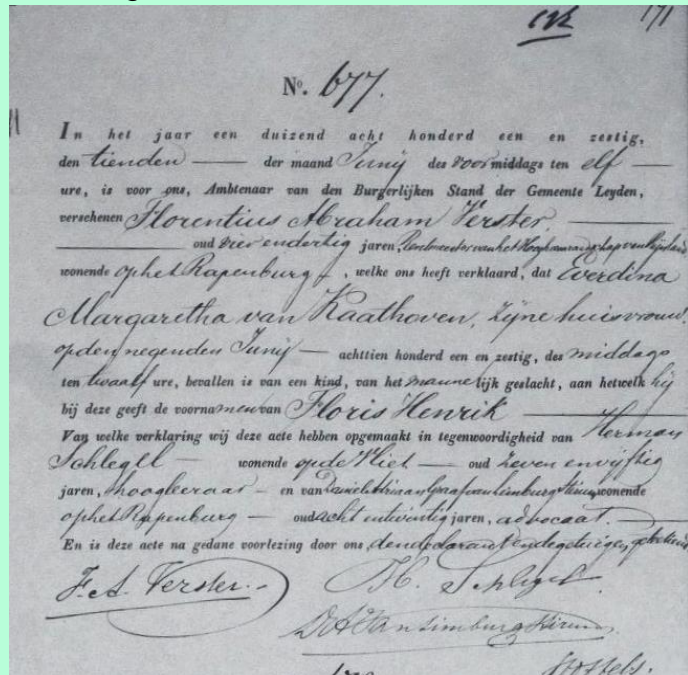 171
No. 677.
In het jaar een duizend acht honderd een en zestig,
den tienden der maand Junij des voormiddags ten elf
ure, is voor ons, Ambtenaar van den Burgerlijken Stand der Gemeente Leyden,
verschenen Florentius Abraham Verster
oud vier endertig jaren, Rentmeester van het Hoogheemraadschap van Rijnland
wonende op het Rapenburg, welke ons heeft verklaard, dat Everdina
Margaretha van Raathoven, zijne huisvrouw,
op den negenden Junij achttien honderd een en zestig, des middags
ten twaalf ure, bevallen is van een kind, van het mannelijk geslacht, aan hetwelk hij
bij deze geeft de voornamen van Floris Henrik
Van welke verklaring wij deze acte hebben opgemaakt in tegenwoordigheid van Herman
Schlegel wonende op de Vliet oud zeven envijftig
jaren, hoogleeraar en van Daniel Adriaan Graaf van Limburg Stirum, wonende
op het Rapenburg oud acht entwintig jaren, advocaat.
En is deze acte na gedane voorlezing door ons, den declarant en de getuigen, geteekend
F. A. Verster. H. Schlegel
D A van Limburg Stirum.